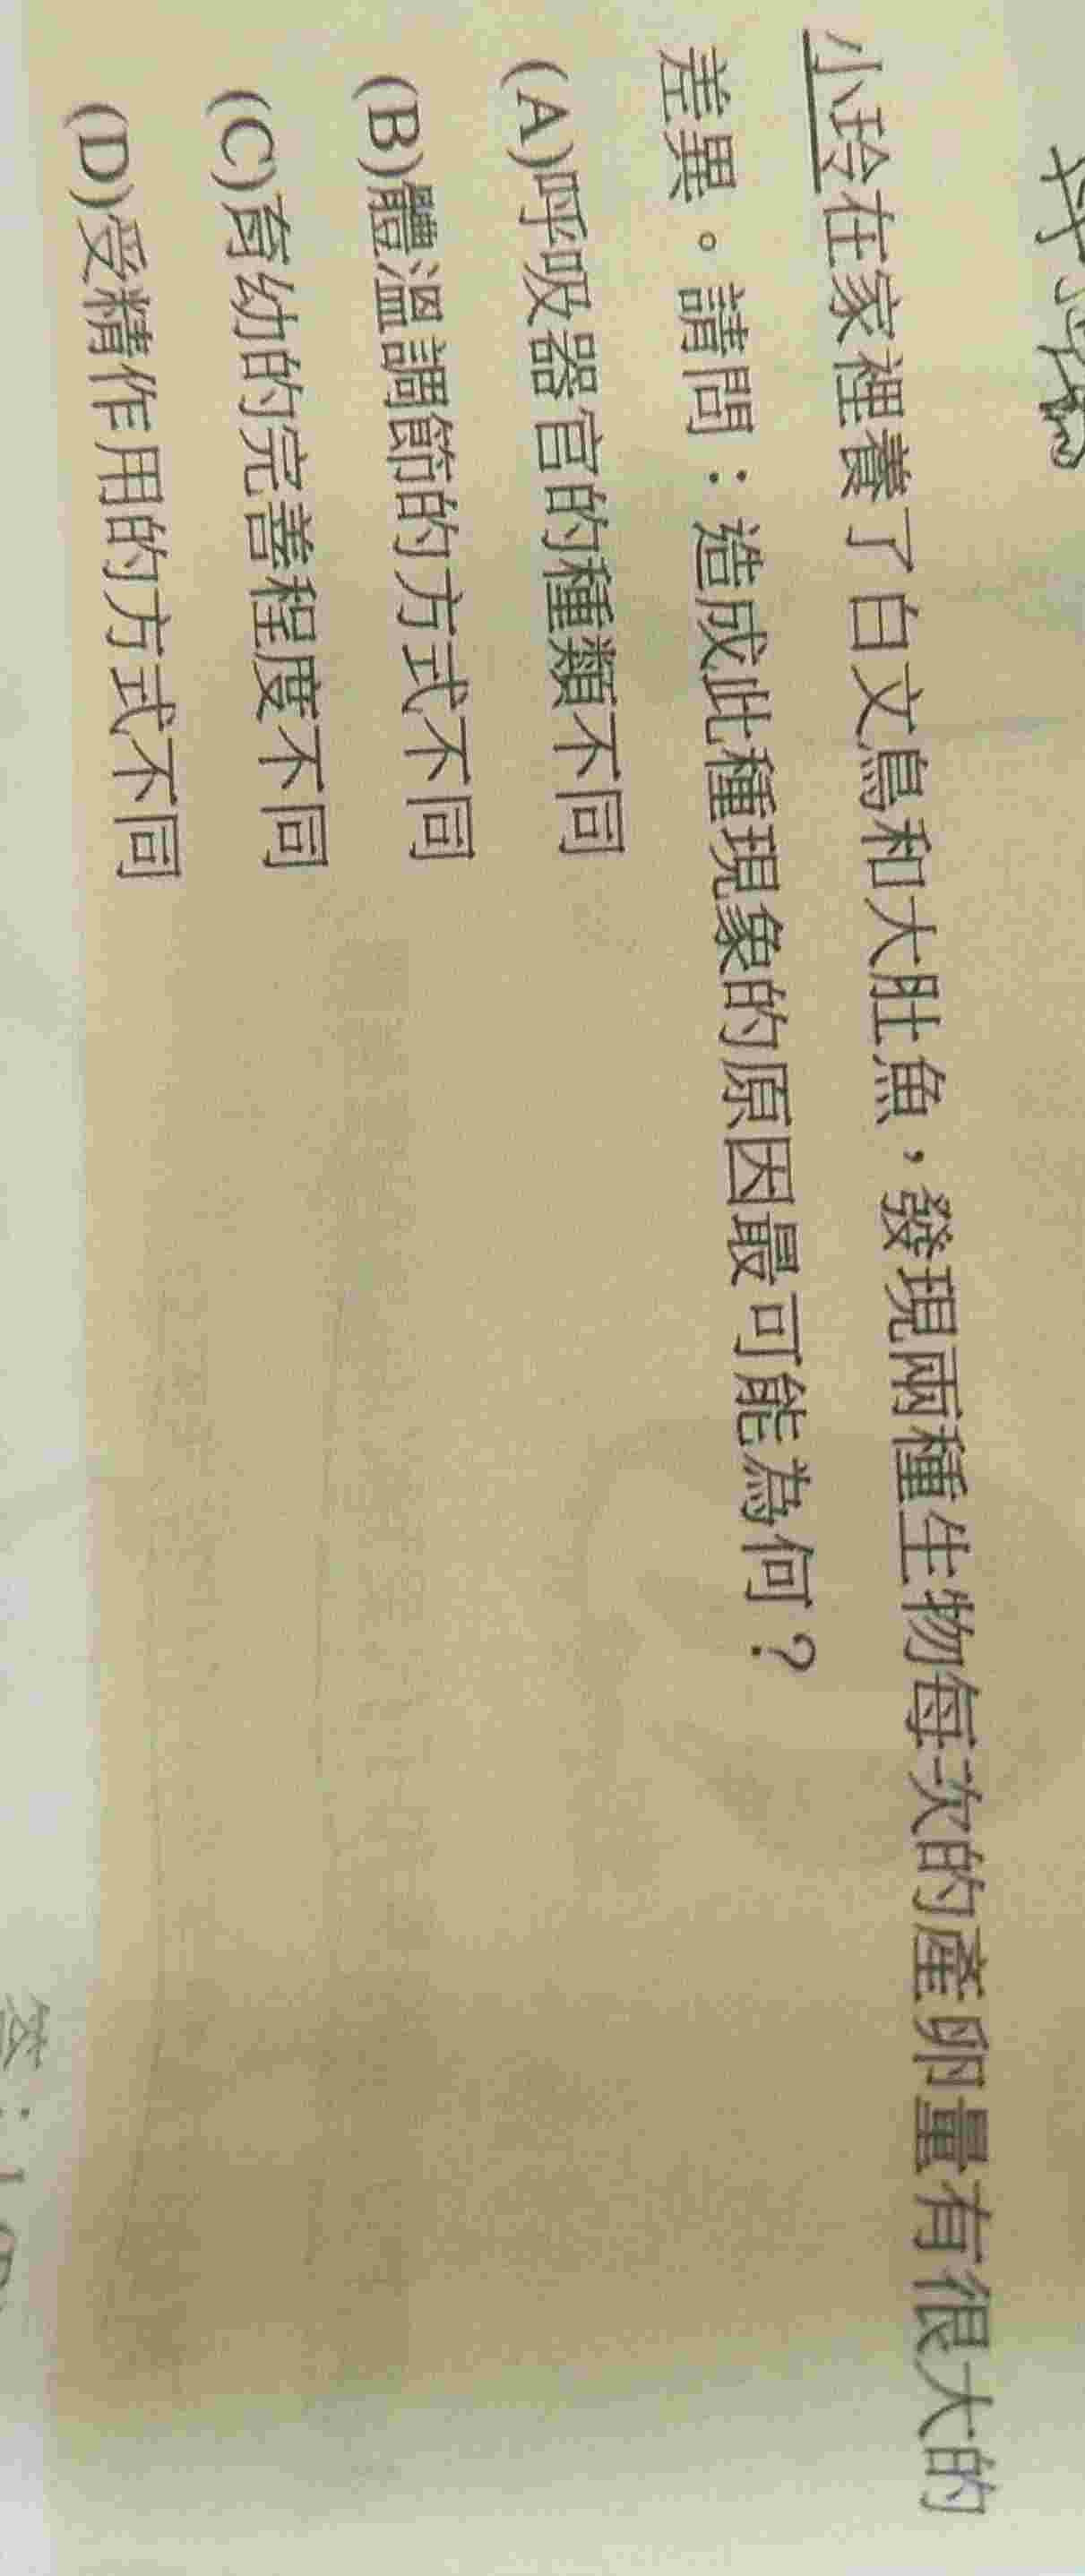 小玲在家裡養了白文鳥和大肚魚，發現兩種生物每次的產卵量有很大的
差異。請問：造成此種現象的原因最可能為何？
(A)呼吸器官的種類不同
(B)體溫調節的方式不同
(C)育幼的完善程度不同
(D)受精作用的方式不同
答：1